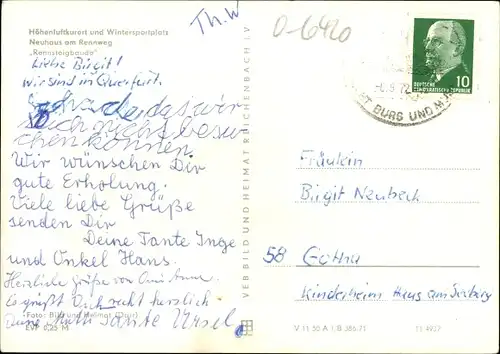 Höhenluftkurort und Wintersportplatz
Neuhaus am Rennweg
„Rennsteigbaude"
Th.W
0-6420
Liebe Birgit!
wir sind in Querfurt.
Schade, das wir
Dich nicht besu-
chen können.
Wir wünschen Dir
gute Erholung.
Viele liebe Grüße
senden Dir
Deine Tante Inge
und Onkel Hans.
Herzliche Grüße von Omi Anna
Es grüßt Dich recht herzlich
Deine Tante Ursel
Foto: Bild und Heimat
EVP 0,25 M
VEB BILD UND HEIMAT REICHENBACH I. V
DEUTSCHE
DEMOKRATISCHE REPUBLIK
10
BURG UND
Fräulein
Birgit Neubeck
58 Gotha
Kinderheim Haus am Seeberg
V 11 50 A 1/B 386/71